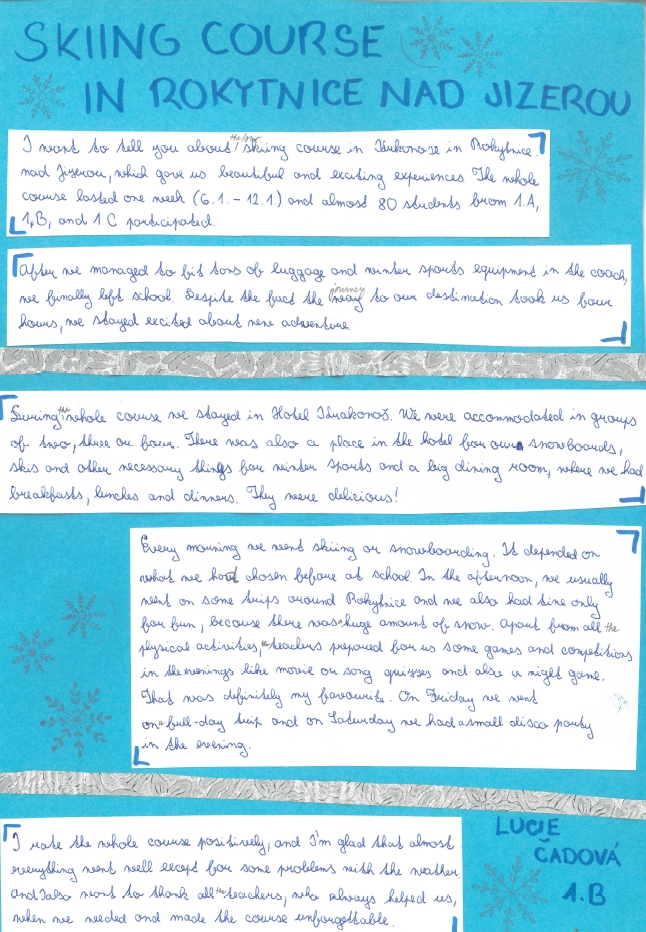 SKIING COURSE
IN ROKYTNICE NAD JIZEROU
I want to tell you about the/our skiing course in Krkonoše in Rokytnice
nad Jizerou, which gave us beautiful and exciting experiences. The whole
course lasted one week (6.1. - 12.1.) and almost 80 students from 1.A,
1.B, and 1.C participated.
After we managed to fit tons of luggage and winter sports equipment in the coach,
we finally left school. Despite the fact the journey way to our destination took us four
hours, we stayed excited about new adventure
During the whole course we stayed in Hotel Krakonoš. We were accommodated in groups
of two, three or four. There was also a place in the hotel for our snowboards,
skis and other necessary things for winter sports and a big dining room, where we had
breakfasts, lunches and dinners. They were delicious!
Every morning we went skiing or snowboarding. It depended on
what we had chosen before at school. In the afternoon, we usually
went on some trips around Rokytnice and we also had time only
for fun, because there was a huge amount of snow. Apart from all the
physical activities, the teachers prepared for us some games and competitions
in the evenings like movie or song quizzes and also a night game.
That was definitely my favourite. On Friday we went
on a full-day trip and on Saturday we had a small disco party
in the evening.
I rate the whole course positively, and I'm glad that almost
everything went well except for some problems with the weather.
And I also want to thank all the teachers, who always helped us,
when we needed and made the course unforgettable.
LUCIE
ČADOVÁ
1.B